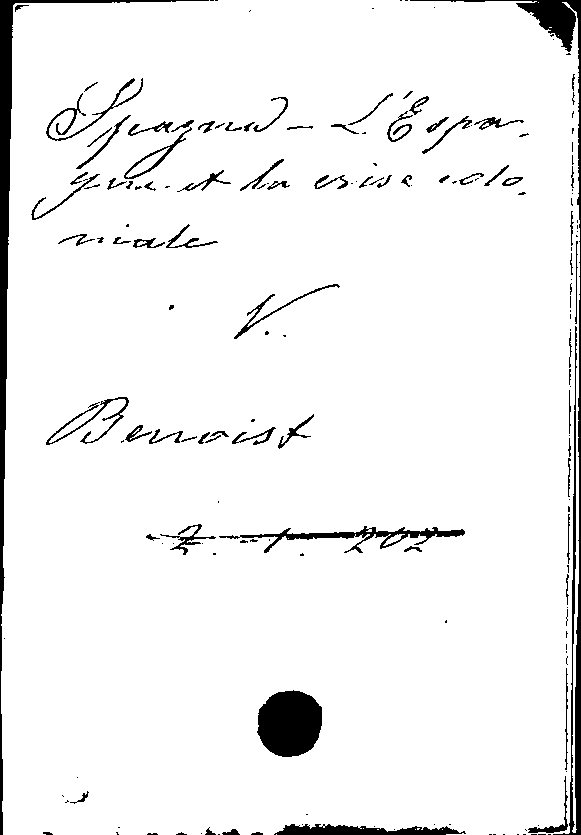 Spagna - L'Espa-
gne et la crise colo-
niale
V.
Benoist
2. - 1. 202